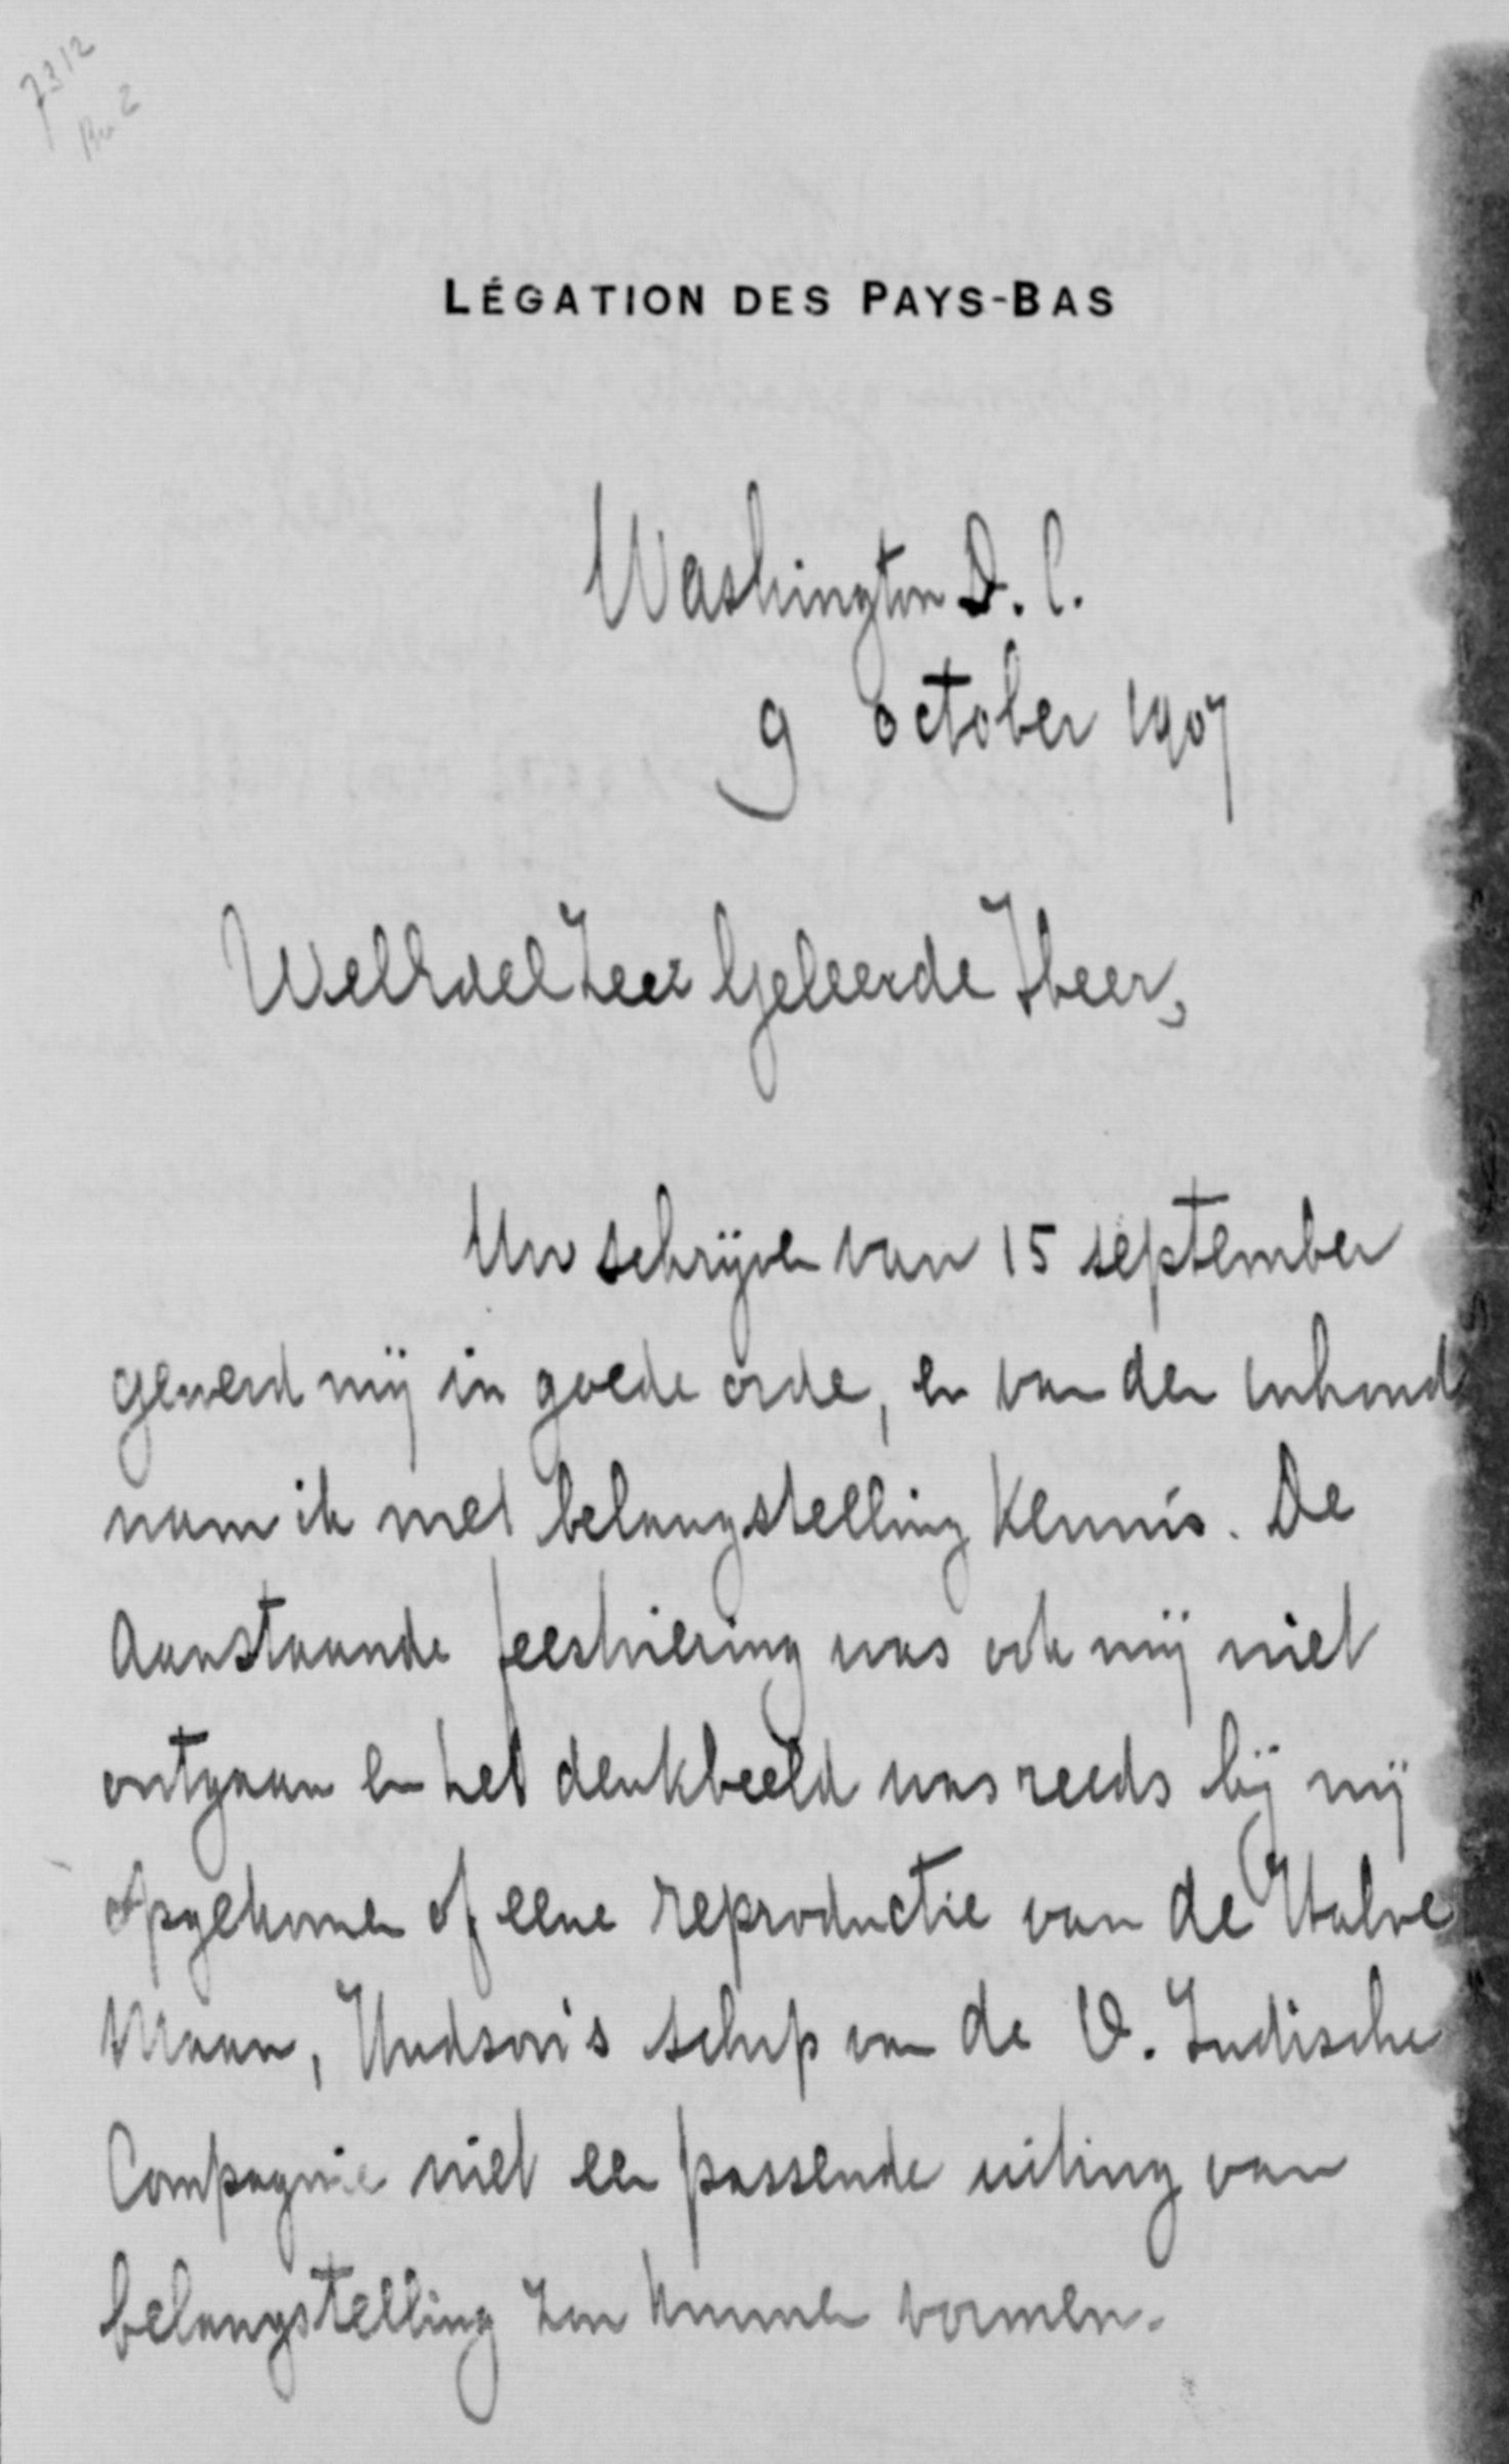 7312
Bu 2
LÉGATION DES PAYS-BAS
Washington D. C.
9 october 1907
WelEdel Zeer Geleerde Heer,
Uw schrijven van 15 september
gewerd mij in goede orde, en van den inhoud
nam ik met belangstelling kennis. De
aanstaande feestviering was ook mij niet
ontgaan en het denkbeeld was reeds bij mij
opgekomen of eene reproductie van de Halve
Maan, Hudson's schip van de O. Indische
Compagnie niet een passende uiting van
belangstelling zou kunnen vormen.